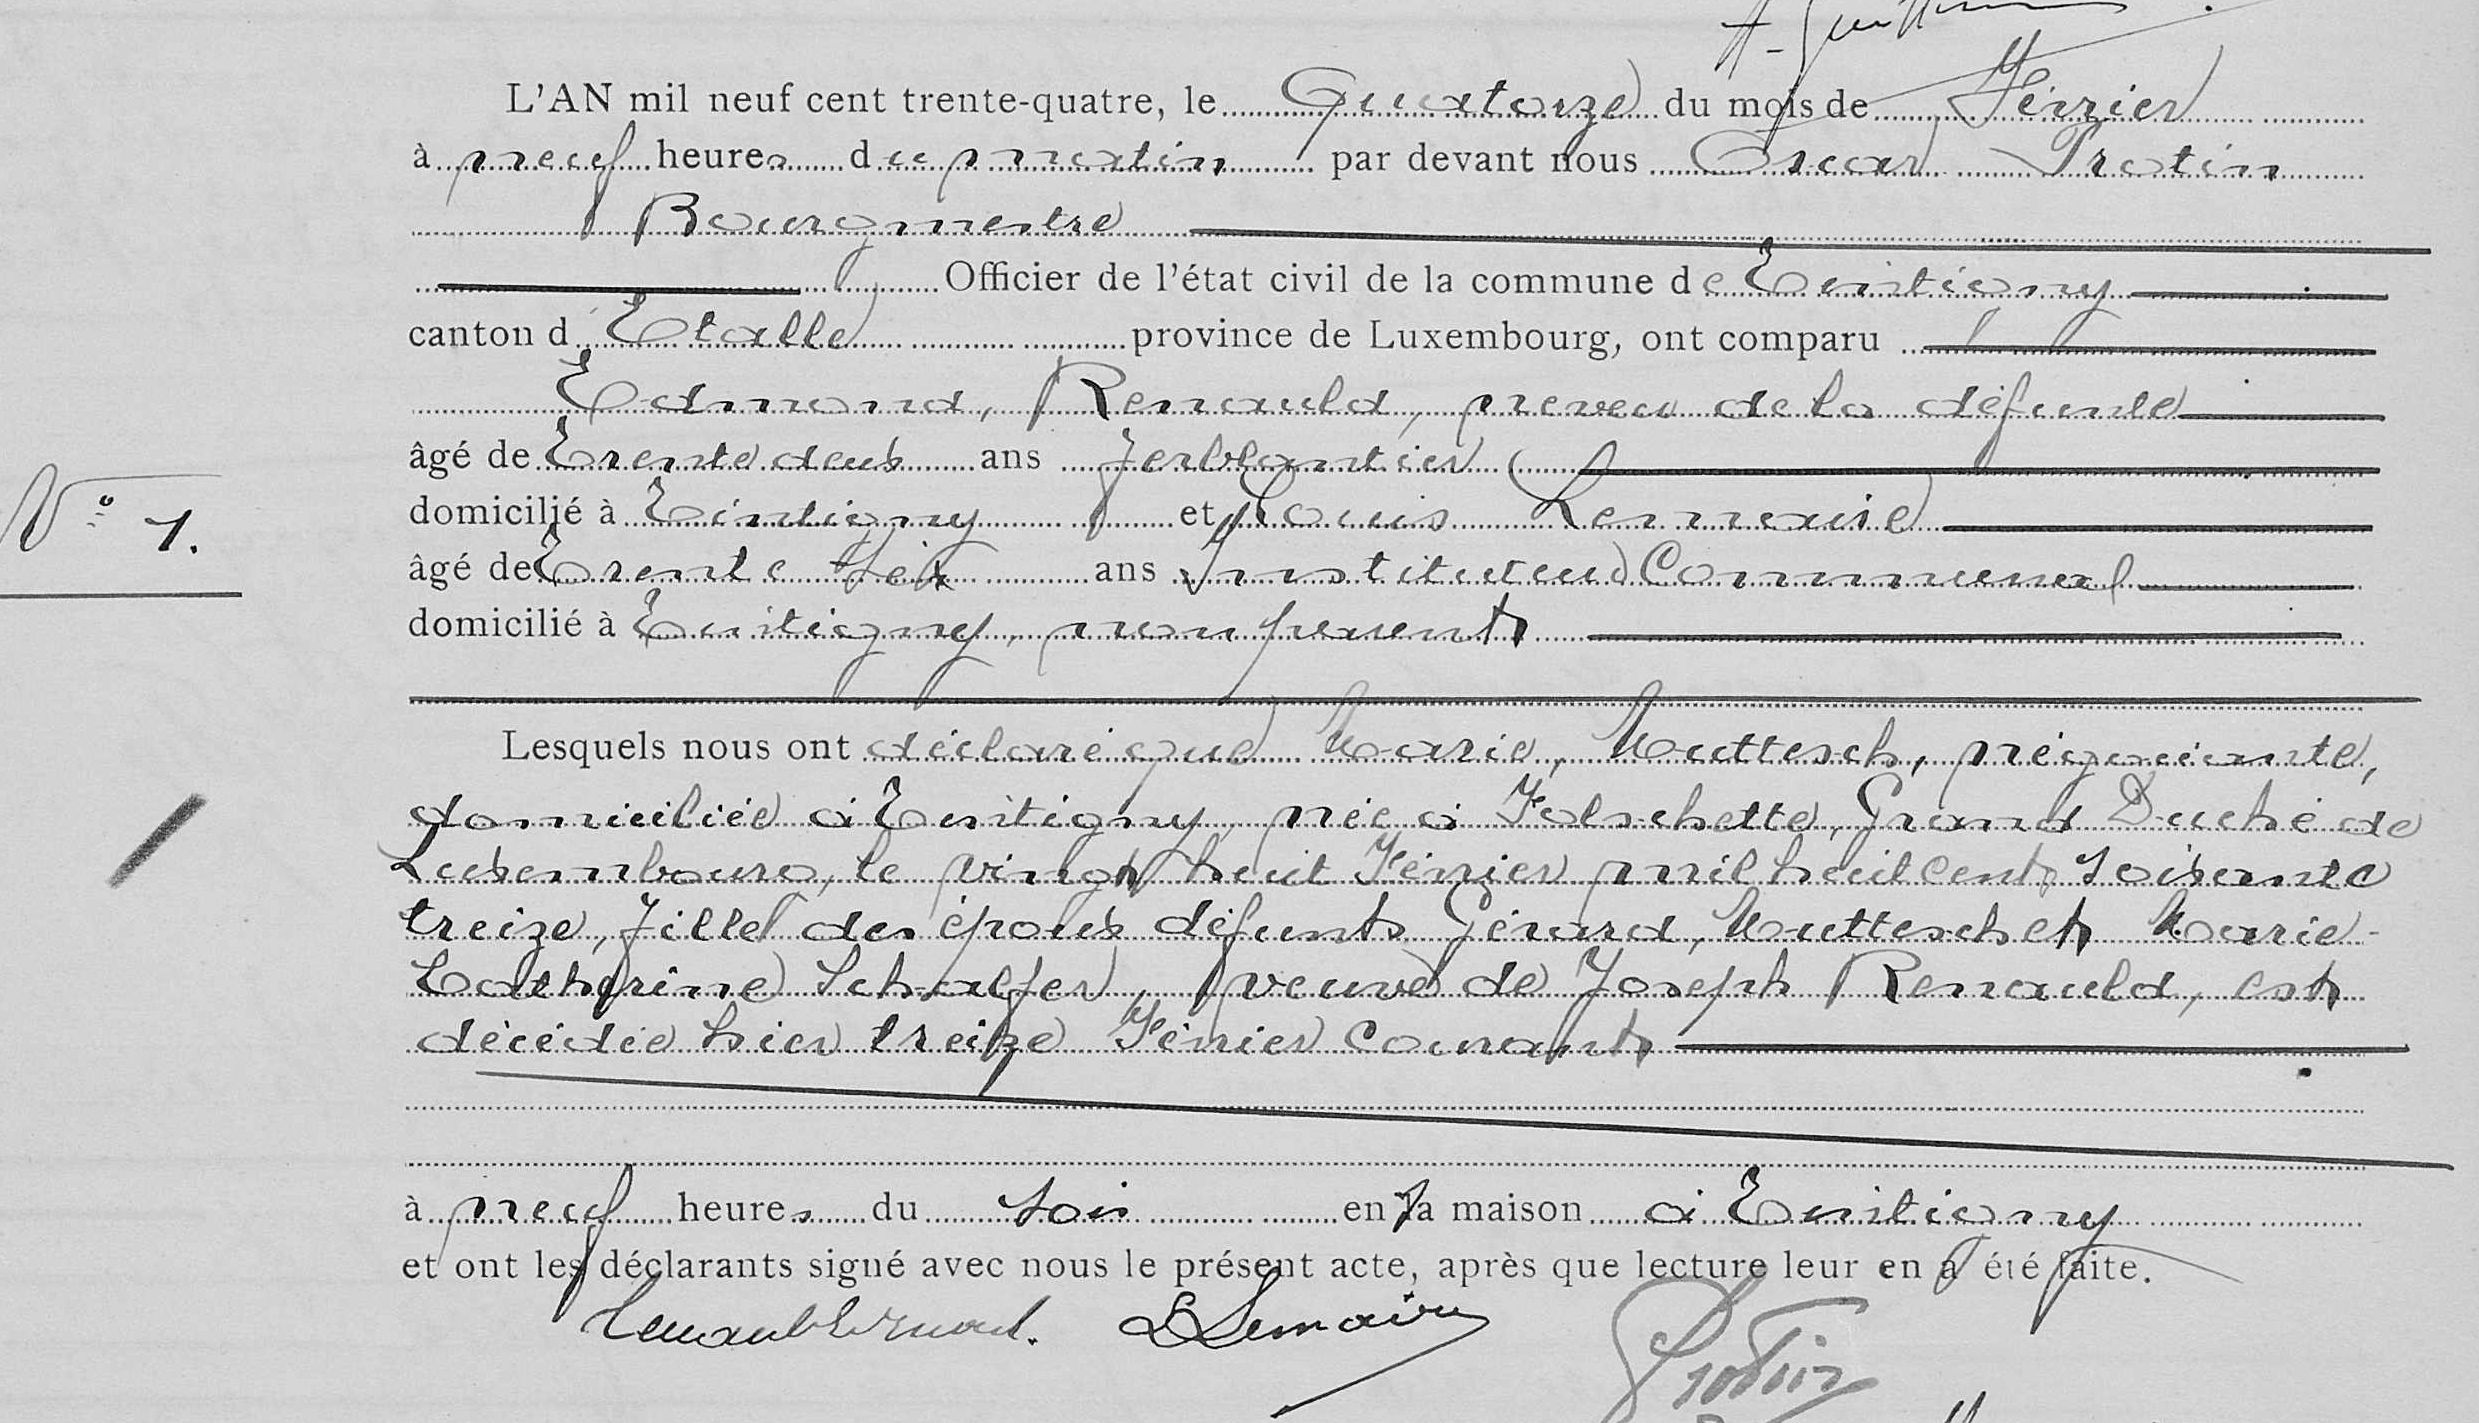 L'AN mil neuf cent trente-quatre, le Quatorze du mois de Février
à neuf heures du matin par devant nous Oscar Protin
Bourgmestre
Officier de l'état civil de la commune de Tintigny
canton d'Etalle province de Luxembourg, ont comparu
Edmond, Renauld, neveu de la défunte
âgé de Trente deux ans ferblantier
domicilié à Tintigny et Louis Lemaire
N° 7.
âgé de Trente six ans Instituteur Communal
domicilié à Tintigny, non parents
Lesquels nous ont déclaré que Marie, Muttesch, négociante,
domiciliée à Tintigny, née à Folschette, Grand Duché de
Luxembourg, le vingt huit Février mil huit cent soixante
treize, fille des époux défunts Gérard, Muttesch et Marie-
Catherine Schalfer, veuve de Joseph Renauld, est
décédée hier treize Février Courant
à neuf heures du soir en sa maison à Tintigny
et ont les déclarants signé avec nous le présent acte, après que lecture leur en a été faite.
L Lemaire Protin